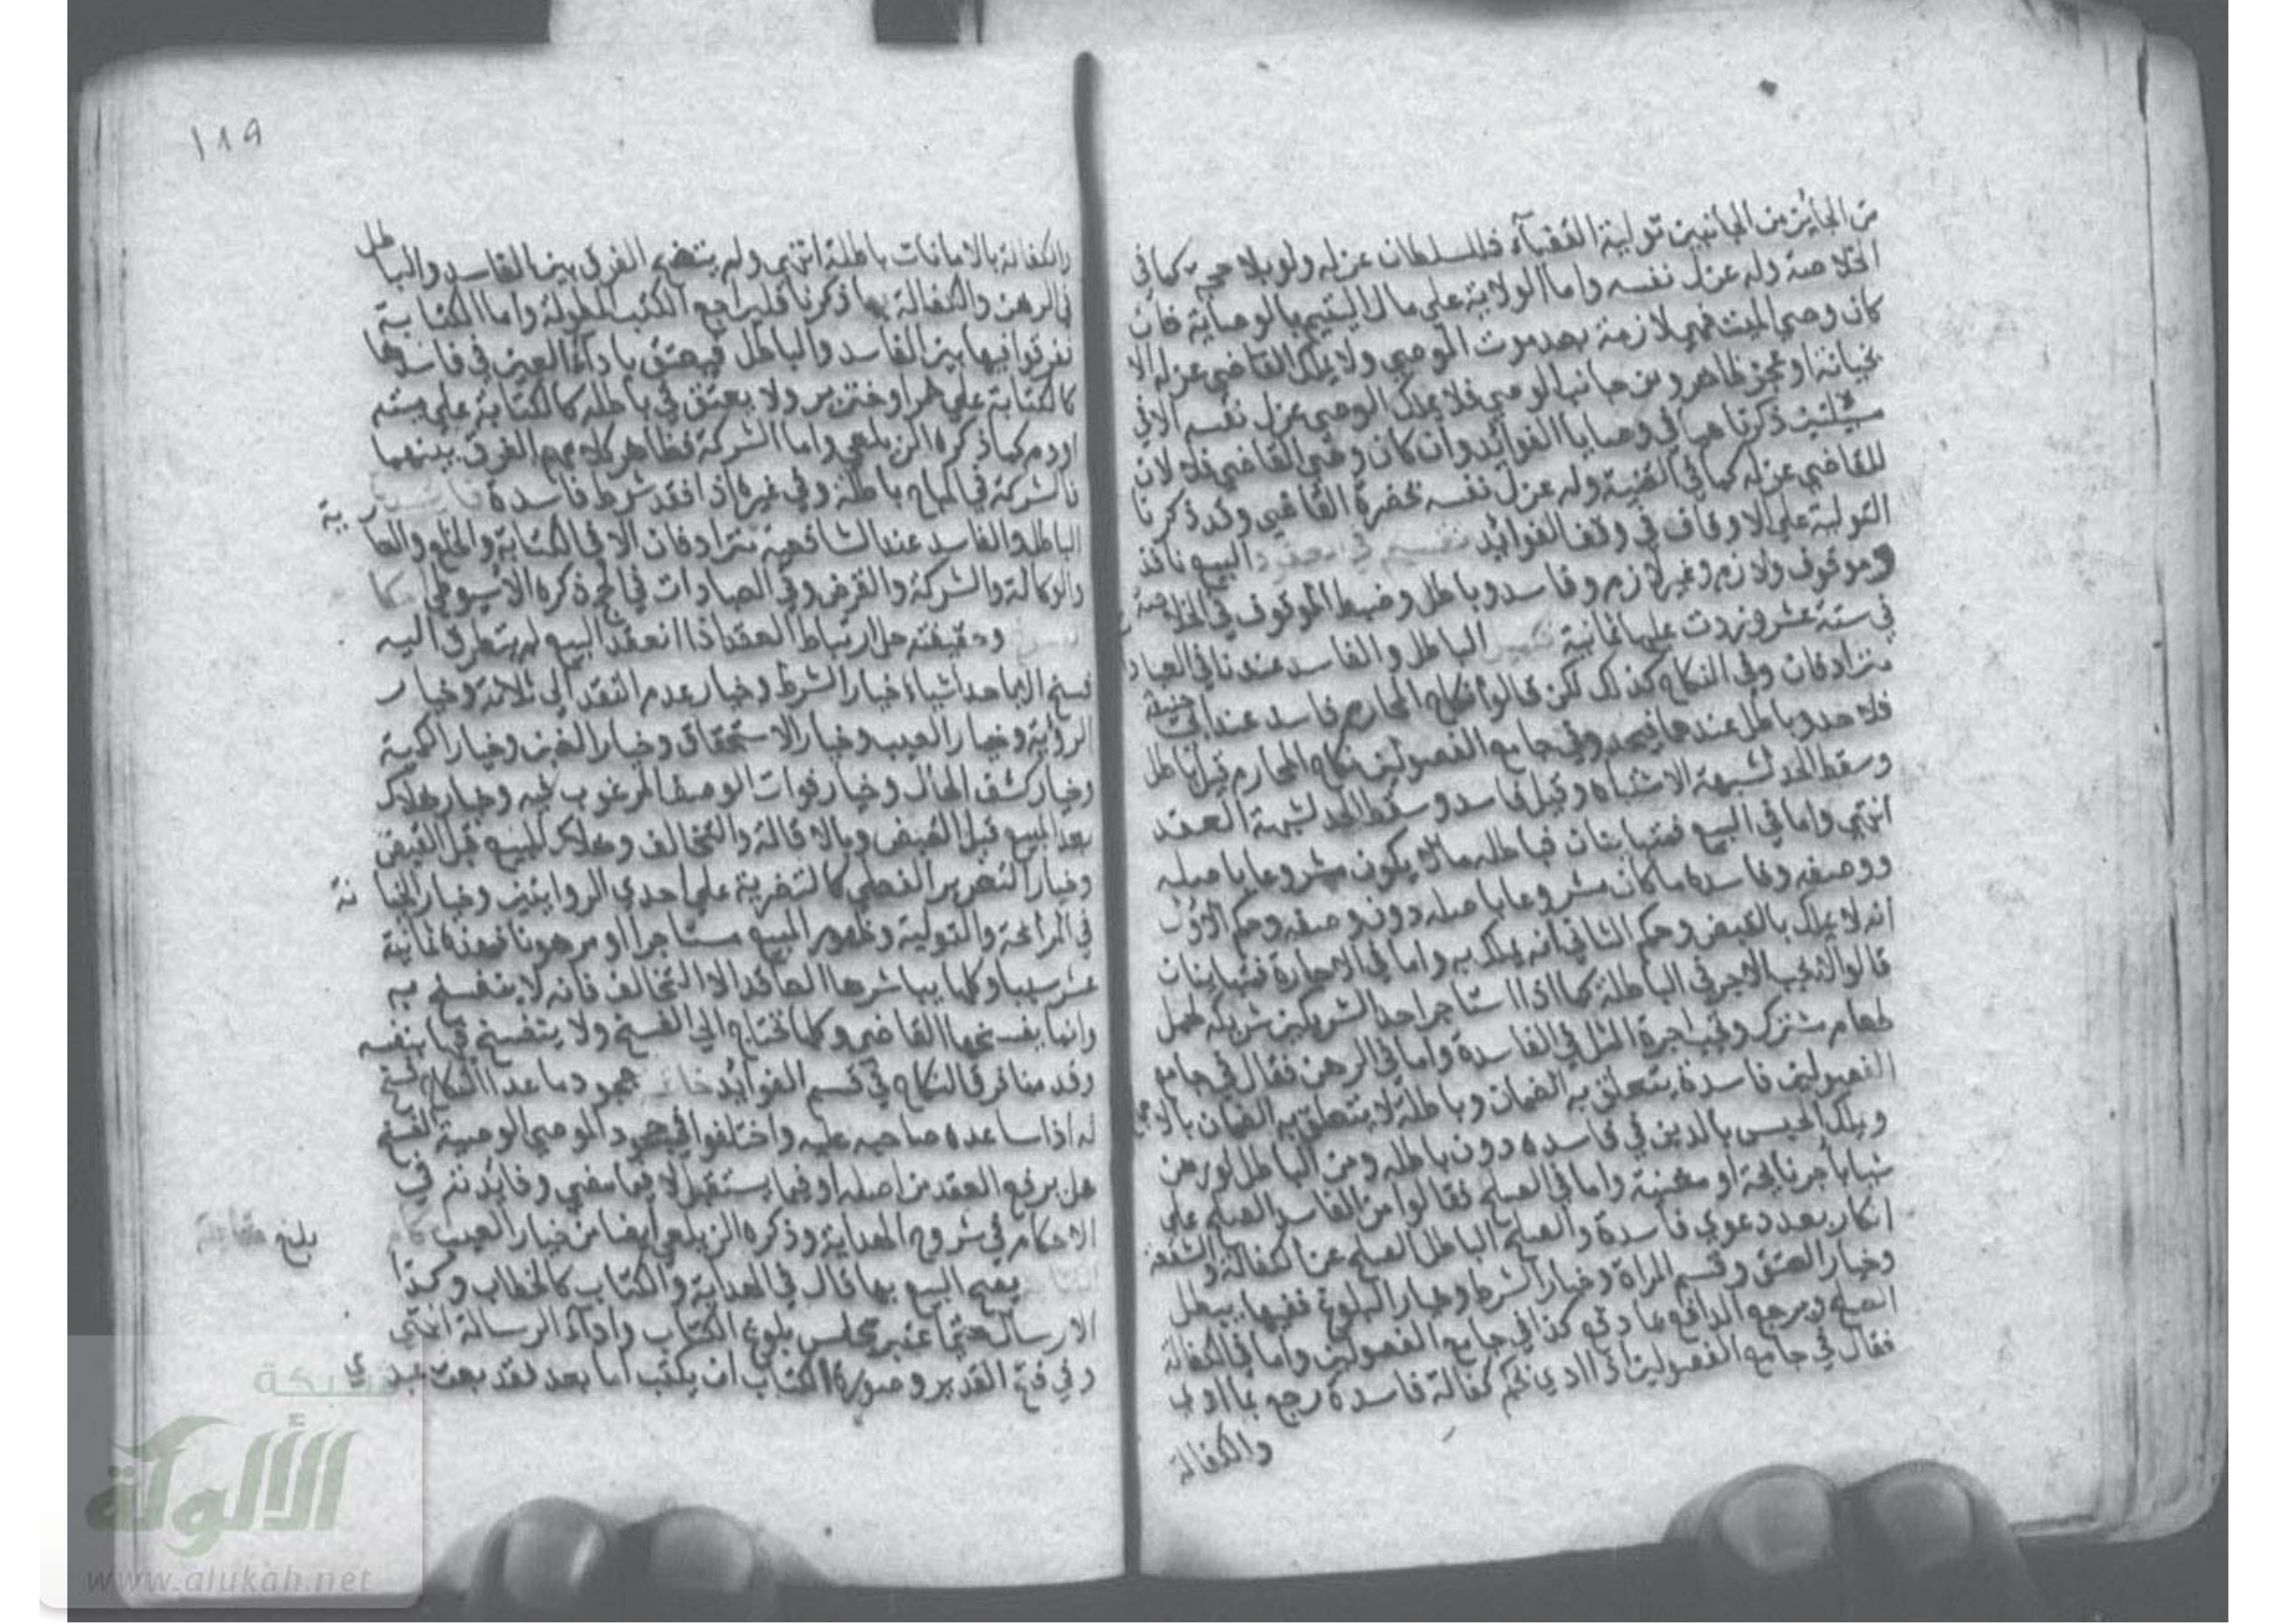 من الجائز من الجانبين تولية القضآء فللسلطان عزله ولو بلا حجة كما في
الخلاصة وله عزل نفسه واما الولاية على مال اليتيم بالوصاية فان
كان وصي الميت فهي لازمة بعد موت الموصي ولا يملك القاضي عزله الا
بخيانة او عجز ظاهر ومن جانب الوصي فلا يملك الوصي عزل نفسه الا في
مسئلتين ذكرناهما في وصايا الفوائد وان كان وصي القاضي فلا لان
للقاضي عزله كما في القنية وله عزل نفسه بحضرة القاضي وقد ذكرنا
التولية على الاوقاف في وقف الفوائد تقسيم في العقود البيع نافذ
وموقوف ولازم وغير لازم وفاسد وباطل وضبط الموقوف في الخلاصة
في ستة عشر وزدت عليها ثمانية تكميل الباطل والفاسد عندنا في العباد
مترادفان وفي النكاح كذلك لكن قالوا نكاح المحارم فاسد عند ابي حنيفة
فلا حد وباطل عندهما فيحد وفي جامع الفصولين نكاح المحارم قيل باطل
وسقط الحد لشبهة الاشتباه وقيل فاسد وسقط الحد لشبهة العقد
انتهي واما في البيع فمتباينان فباطله مالا يكون مشروعا باصله
ووصفه وفاسده ما كان مشروعا باصله دون وصفه وحكم الاول
انه لا يملك بالقبض وحكم الثاني انه يملك به واما في الاجارة فمتباينان
قالوا لا يجب الاجر في الباطلة كما اذا استاجر احد الشريكين شريكه لحمل
طعام مشترك وتجب اجرة المثل في الفاسدة واما في الرهن فقال في جامع
الفصولين فاسدة يتعلق به الضمان وباطلة لا يتعلق به الضمان بالاجماع
ويملك الحبس بالدين في فاسده دون باطله ومن الباطل لو رهن
شيا باجر نايحة او مغنية واما في الصلح فقالوا من الفاسد الصلح على
انكار بعد دعوي فاسدة والصلح الباطل الصلح عن الكفالة والشفعة
وخيار العتق وقسم المراة وخيار الشرط وخيار البلوغ ففيها يبطل
الصلح ويرجع الدافع بما دفع كذا في جامع الفصولين واما في الكفالة
فقال في جامع الفصولين اذا ادي بحكم كفالة فاسدة رجع بما ادي
والكفالة
١٨٩
والكفالة بالامانات باطلة انتهي ولم يتضح الفرق بين الفاسد والباطل
في الرهن والكفالة بما ذكرنا فليراجع الكتب المطولة واما الكتابة
ففرقوا فيها بين الفاسد والباطل فيعتق بادآء العين في فاسدها
كالكتابة على خمر او خنزير ولا يعتق في باطله كالكتابة على ميتة
او دم كما ذكره الزيلعي واما الشركة فظاهر كلامهم الفرق بينهما
فالشركة في المباح باطلة وفي غيره اذا فقد شرط فاسدة
الباطل والفاسد عند الشافعية مترادفان الا في الكتابة والخلع والعارية
والوكالة والشركة والقرض وفي العبادات في الحج ذكره الاسيوطي
وحقيقته حل ارتباط العقد اذا انعقد البيع لم يتطرق اليه
فسخ الا باحد اشياء خيار الشرط وخيار عدم النقد الى ثلاثة وخيار
الرؤية وخيار العيب وخيار الاستحقاق وخيار الغبن وخيار الكمية
وخيار كشف الحال وخيار فوات الوصف المرغوب فيه وخيار هلاك
بعد المبيع قبل القبض وبالاقالة والتحالف وهلاك المبيع قبل القبض
وخيار التغرير الفعلي كالتصرية على احدي الروايتين وخيار الخيانة
في المرابحة والتولية وظهور المبيع مستاجرا او مرهونا فهذه ثمانية
عشر سببا وكلها يباشرها العاقد الا التحالف فانه لا ينفسخ به
وانما يفسخها القاضي وكلها تحتاج الي الفسخ ولا ينفسخ فيها بنفسه
وقد منا فرق النكاح في قسم الفوائد خاتمة جحود ما عدا النكاح فسخ
له اذا ساعده صاحبه عليه واختلفوا في جحود الموصي الوصية الفسخ
هل يرفع العقد من اصله او فيما يستقبل لا فيما مضي وفايدته في
الاحكام في شروح الهداية وذكره الزيلعي ايضا من خيار العيب
بلغ مقابلة
يصح البيع بها قال في الهداية والكتاب كالخطاب وكذا
الارسال حتى اعتبر مجلس بلوغ الكتاب واداء الرسالة انتهي
وفي فتح القدير وصورة الكتاب ان يكتب اما بعد فقد بعت عبدي
شبكة
الألوكة
www.alukah.net